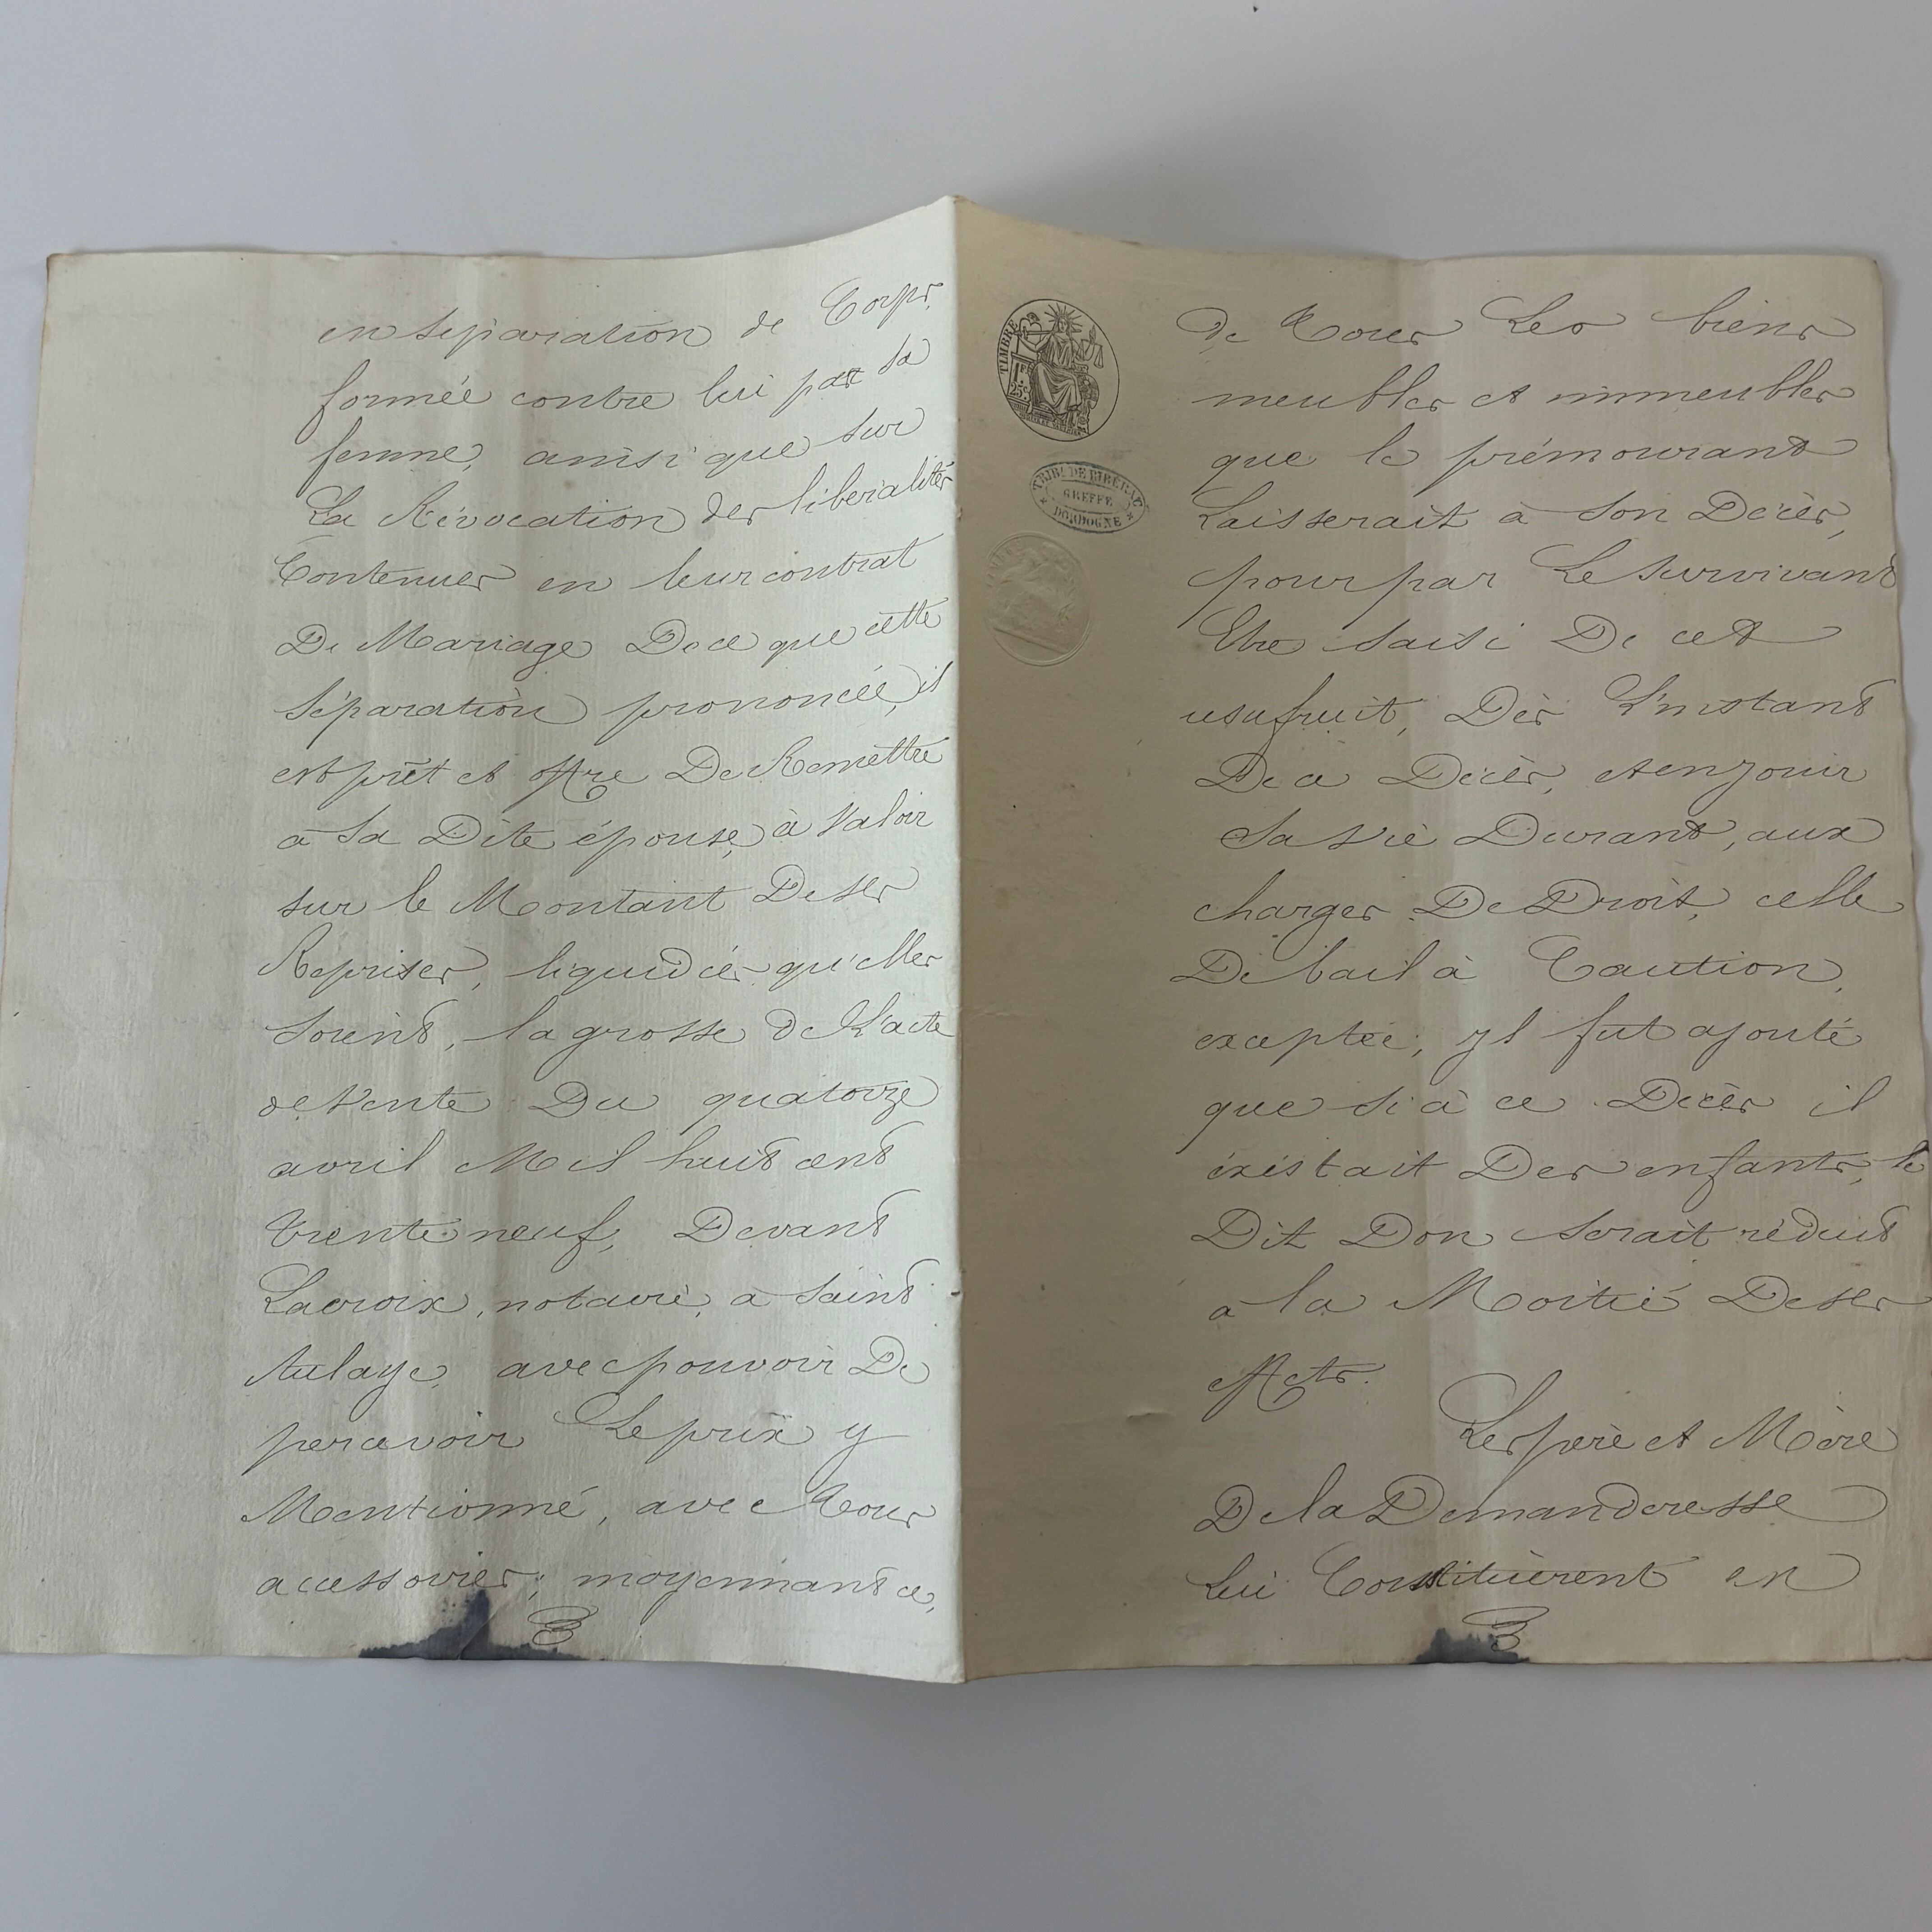 en séparation de Corps
formée contre lui par sa
femme, ainsi que sur
La Révocation des libéralités
Contenues en leur contrat
De Mariage De ce que cette
séparation prononcée, il
est prêt et offre De Remettre
a sa Dite épouse, à valoir
sur le Montant De ses
Reprises, liquidées qu'elles
soient, la grosse de L'acte
de vente Du quatorze
avril Mil huit cent
trente neuf, Devant
Lacroix, notaire, a Saint
Aulaye, avec pouvoir De
percevoir Le prix y
Mentionné, avec tous
accessoires; moyennant ce,
TIMBRE
1F.
25c.
TRIB. DE RIBÉRAC
GREFFE
DORDOGNE
de tous Les biens
meubles et immeubles
que le prémourant
Laisserait à son Décès,
pour par Le survivant
Etre saisi De cet
usufruit, Dès L'instant
De ce Décès, et en jouir
sa vie Durant, aux
charges De Droit, celle
De bail à Caution,
exceptée; yl fut ajouté
que si à ce Décès il
éxistait Des enfants, le
Dit Don serait réduit
a la Moitié De ses
effets.
Les père et Mère
De la Demanderesse
Lui Constituèrent en